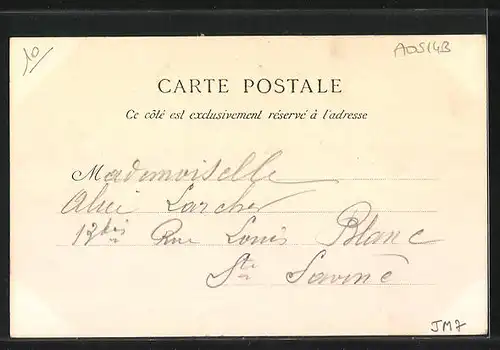 10
AOS14B
CARTE POSTALE
Ce côté est exclusivement réservé à l'adresse
Mademoiselle
Alice Larcher
12bis Rue Louis Blanc
Ste Savine
JM7